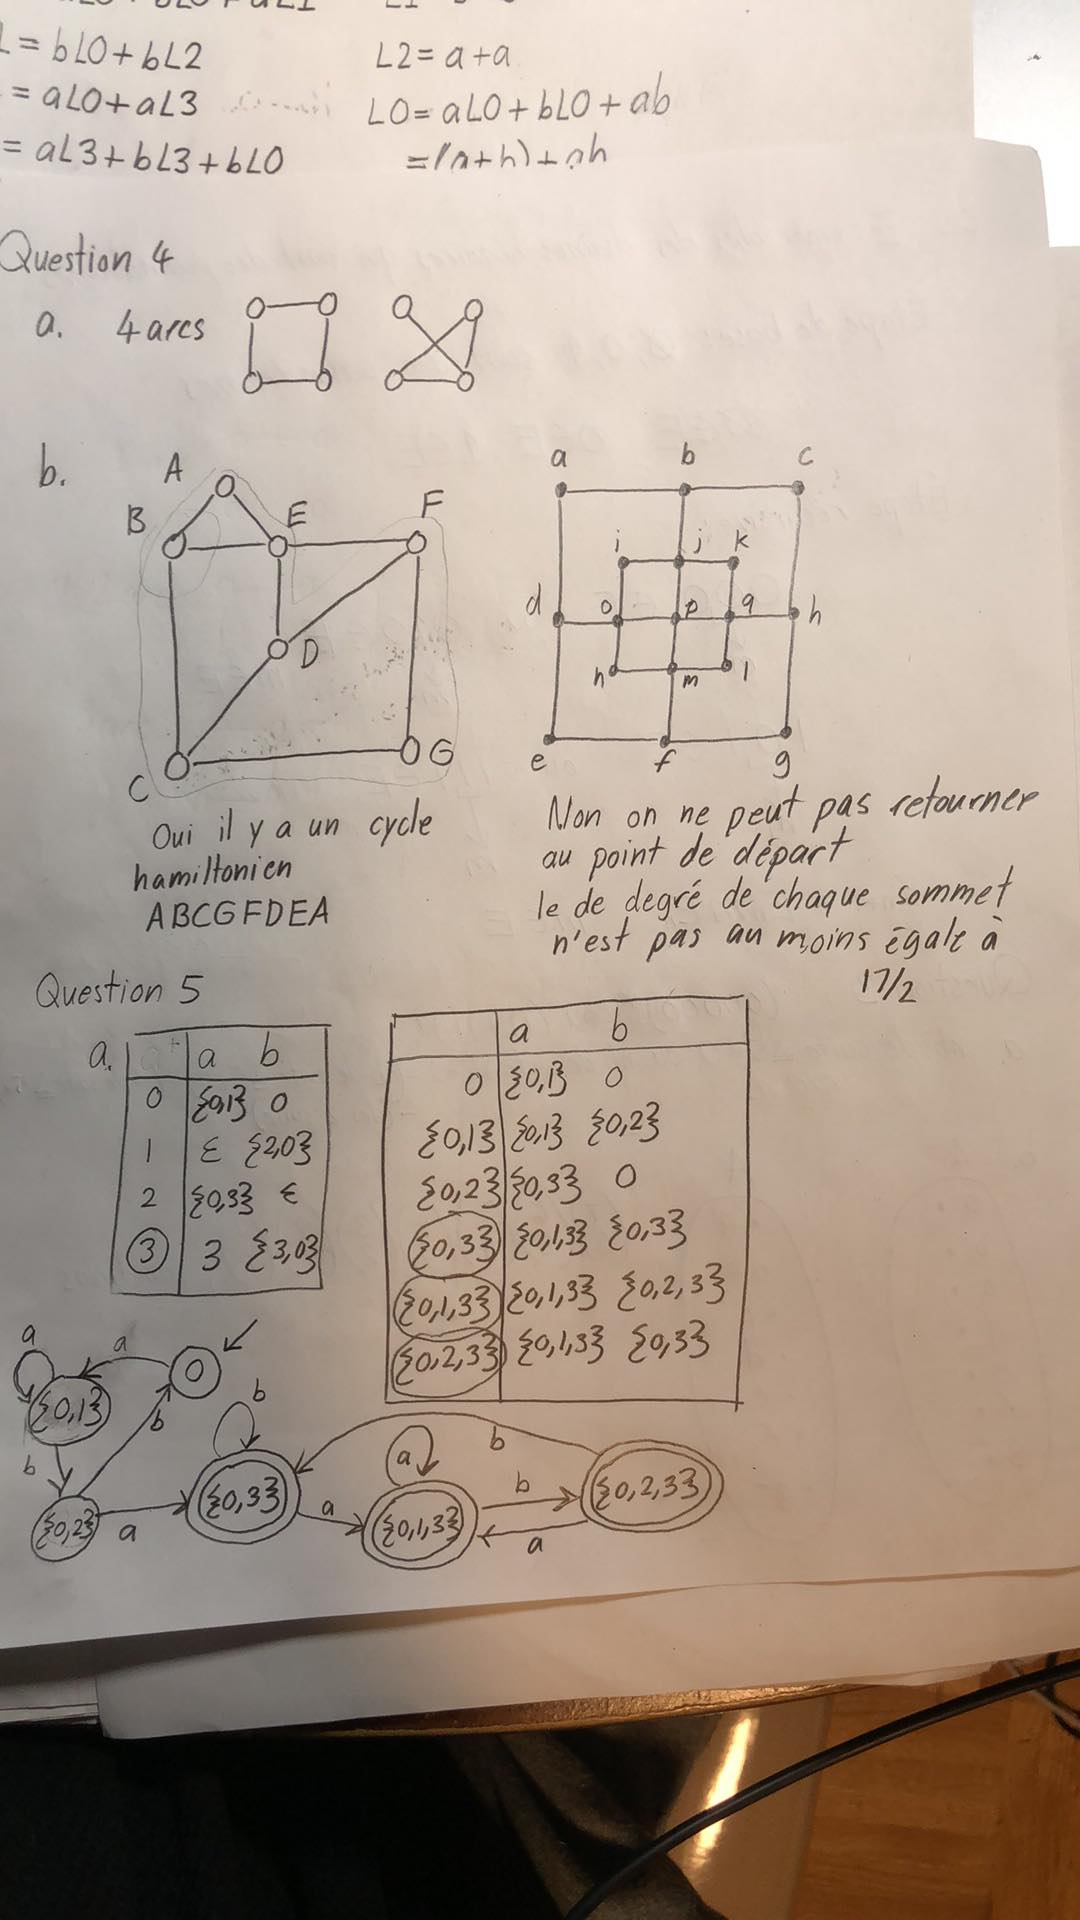 L = bL0 + bL2
L2 = a + a
= aL0 + aL3
L0 = aL0 + bL0 + ab
= aL3 + bL3 + bL0
= (a+b) + ab
Question 4
a. 4 arcs
b.
A
B E F
D
C G
a b c
i j k
d o p q h
n m l
e f g
Oui il y a un cycle
hamiltonien
ABCGFDEA
Non on ne peut pas retourner
au point de départ
le de degré de chaque sommet
n'est pas au moins égale à
17/2
Question 5
a.
a b
0 {0,1} 0
1 ε {2,0}
2 {0,3} ε
3 3 {3,0}
a b
0 {0,1} 0
{0,1} {0,1} {0,2}
{0,2} {0,3} 0
{0,3} {0,1,3} {0,3}
{0,1,3} {0,1,3} {0,2,3}
{0,2,3} {0,1,3} {0,3}
a a 0
{0,1} b b
b a b
{0,2} a {0,3} a {0,1,3} b {0,2,3}
a